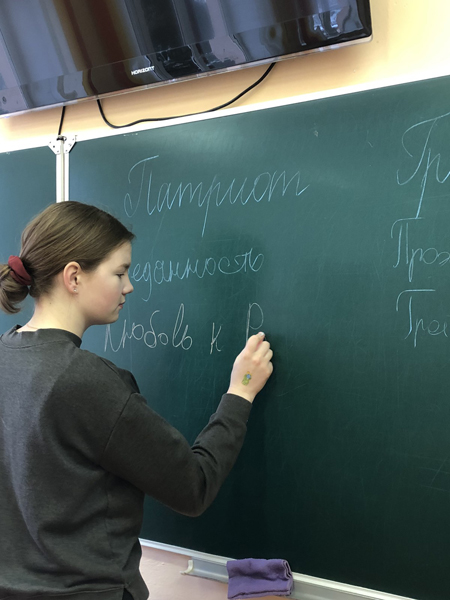 HORIZONT
Патриот
еданность
Любовь к Р
Гр
Про
Гра